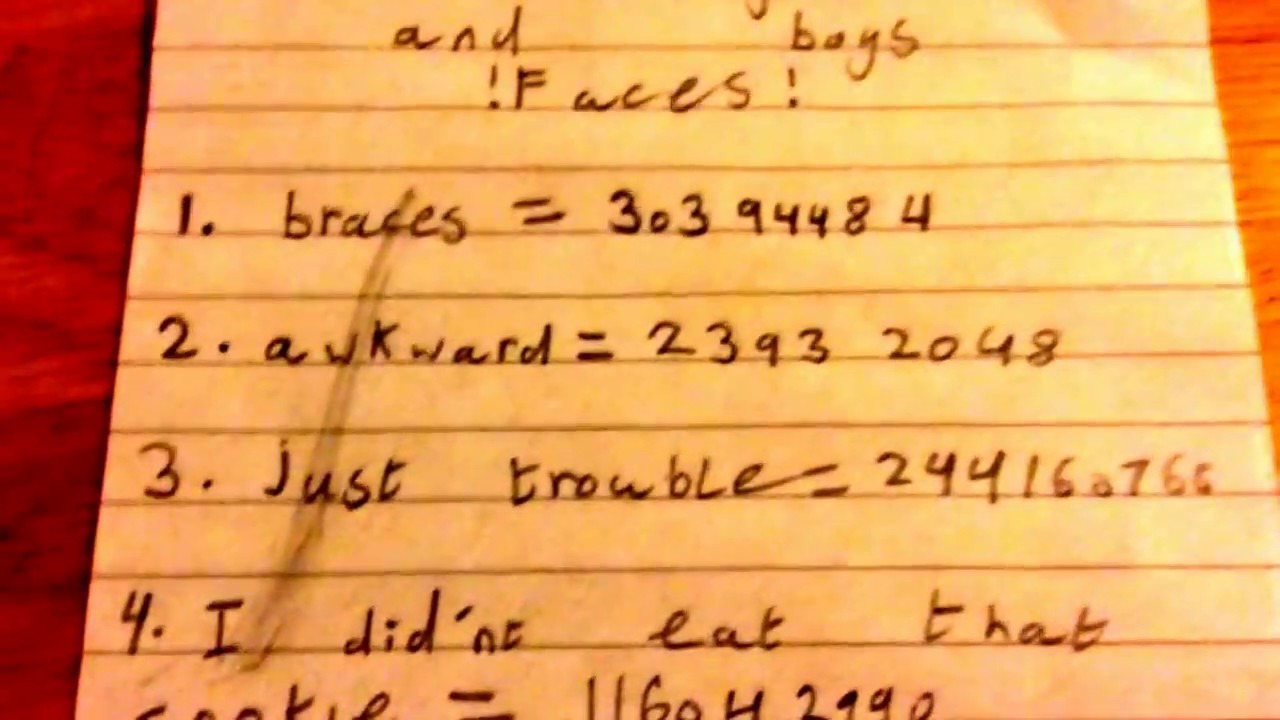 and boys
!Faces!
1. braces = 30394484
2. awkward = 2393 2048
3. just trouble = 244160766
4. I did'nt eat that
cookie = 116042990